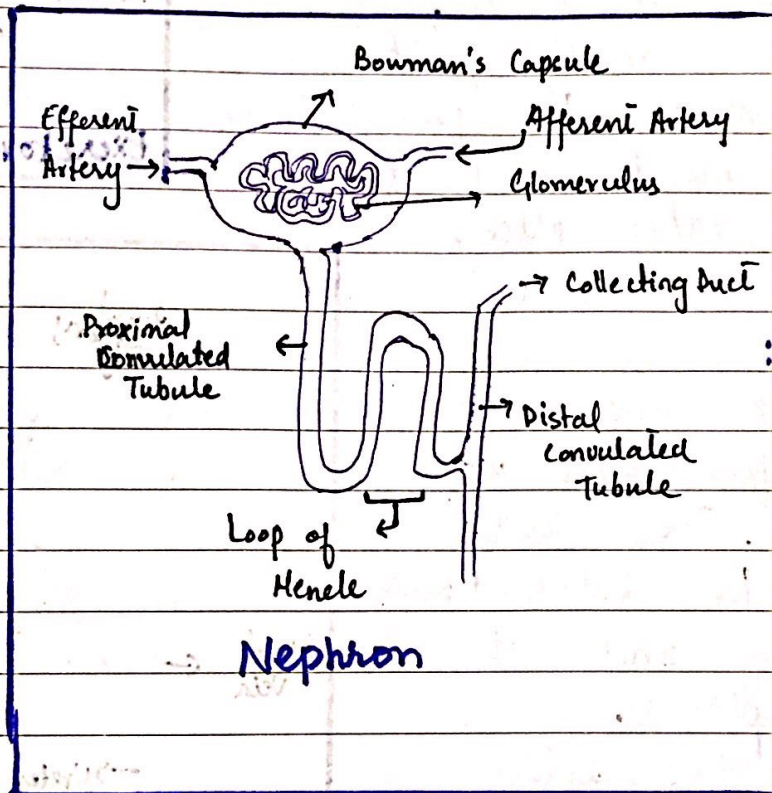 Bowman's Capsule
Efferent
Artery
Afferent Artery
Glomerculus
Collecting Duct
Proximal
Convulated
Tubule
Distal
Convulated
Tubule
Loop of
Henele
Nephron